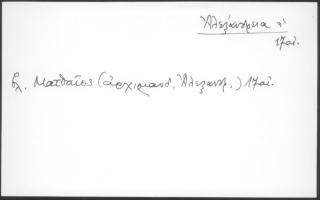 Ἀλεξάνδρεια
17 αἰ.
βλ. Ματθαῖος (ἀρχιμανδ. Ἀλεξανδρ.) 17 αἰ.